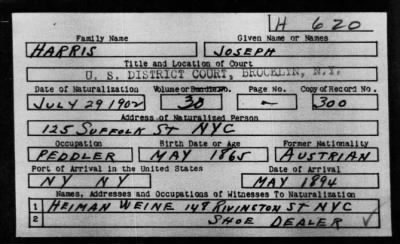 H 620
Family Name Given Name or Names
HARRIS JOSEPH
Title and Location of Court
U. S. DISTRICT COURT, BROOKLYN, N.Y.
Date of Naturalization Volume or Bundle No. Page No. Copy of Record No.
JULY 29 1902 30 - 300
Address of Naturalized Person
125 SUFFOLK ST NYC
Occupation Birth Date or Age Former Nationality
PEDDLER MAY 1865 AUSTRIAN
Port of Arrival in the United States Date of Arrival
NY NY MAY 1894
Names, Addresses and Occupations of Witnesses To Naturalization
1 HEIMAN WEINE 148 RIVINGTON ST NYC
2 SHOE DEALER ✓